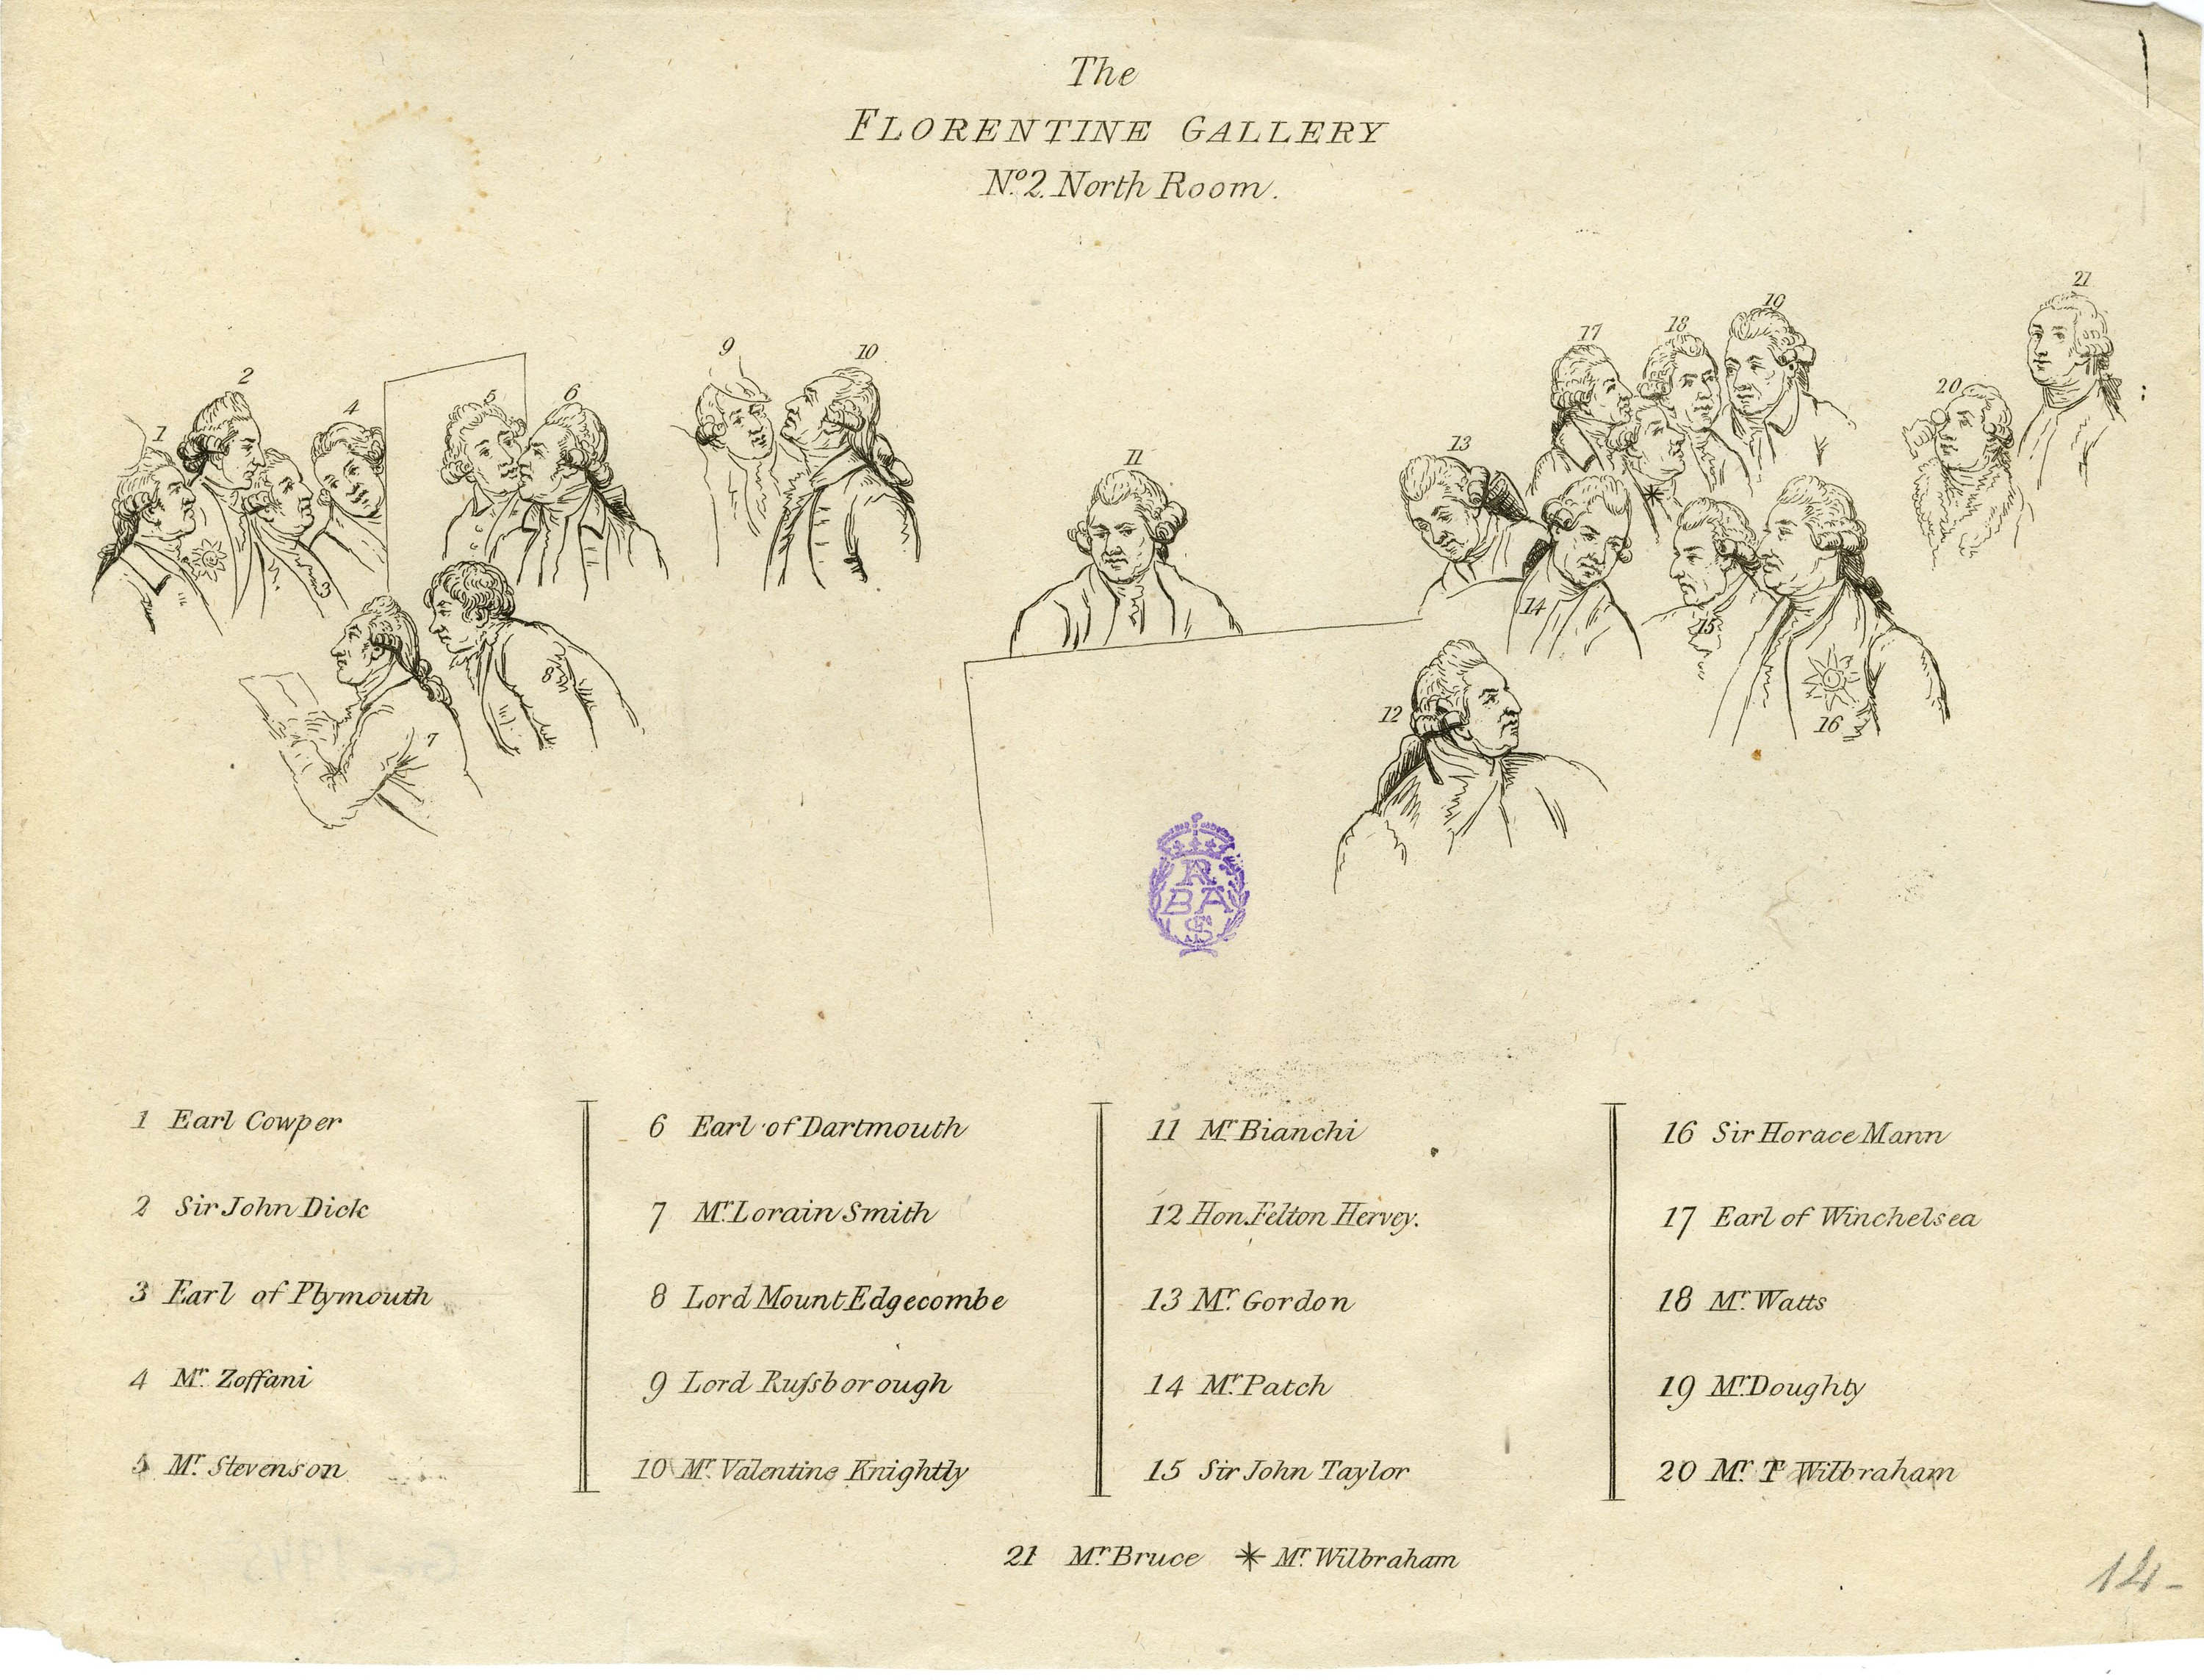 The
FLORENTINE GALLERY
Nº 2. North Room.
1
2
4
5
6
7
8
9
10
11
12
13
14
15
16
17
18
19
20
21
RA
BA
SF
1 Earl Cowper
2 Sir John Dick
3 Earl of Plymouth
4 Mr. Zoffani
5 Mr. Stevenson
6 Earl of Dartmouth
7 Mr. Lorain Smith
8 Lord Mount Edgecombe
9 Lord Ruſsborough
10 Mr. Valentine Knightly
11 Mr. Bianchi
12 Hon. Felton Hervey.
13 Mr. Gordon
14 Mr. Patch
15 Sir John Taylor
16 Sir Horace Mann
17 Earl of Winchelsea
18 Mr. Watts
19 Mr. Doughty
20 Mr. T Wilbraham
21 Mr. Bruce * Mr. Wilbraham
14-